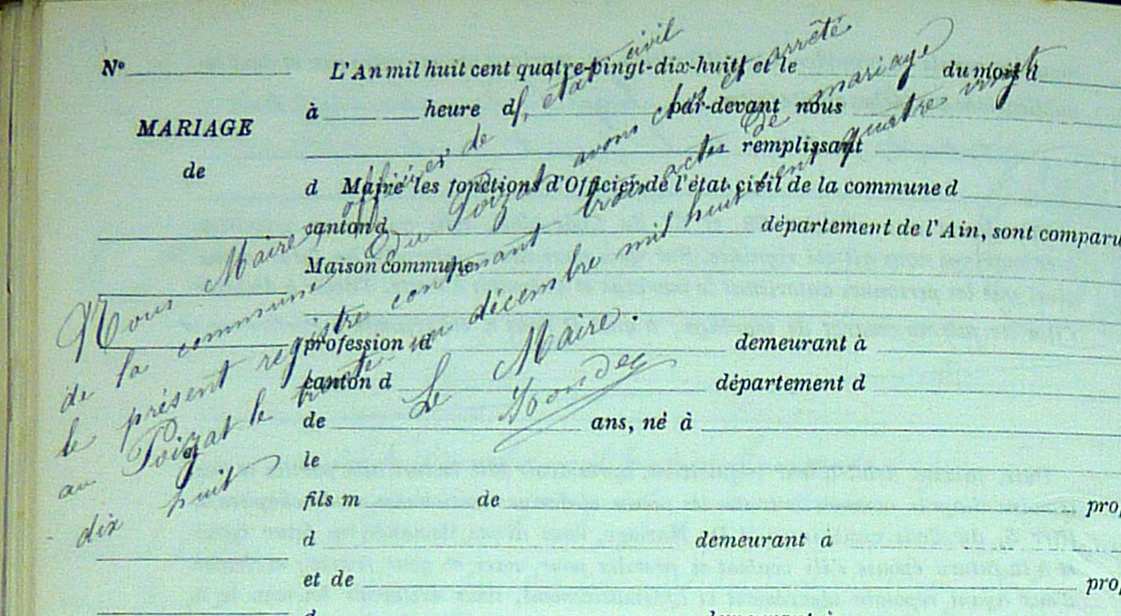 N°
MARIAGE
de
L'An mil huit cent quatre-vingt-dix-huit et le du mois d
à heure d par-devant nous
remplissant
d Maire les fonctions d'Officier de l'état civil de la commune d
canton d département de l'Ain, sont comparu
Maison commune
profession d demeurant à
canton d département d
de ans, né à
le
fils m de pro
d demeurant à
et de pro
d demeurant à
Nous Maire, officier de l'état civil
de la commune du Poizat avons clos et arrêté
le présent registre contenant trois actes de mariage
au Poizat le trente un décembre mil huit cent quatre vingt
dix huit
Le Maire.